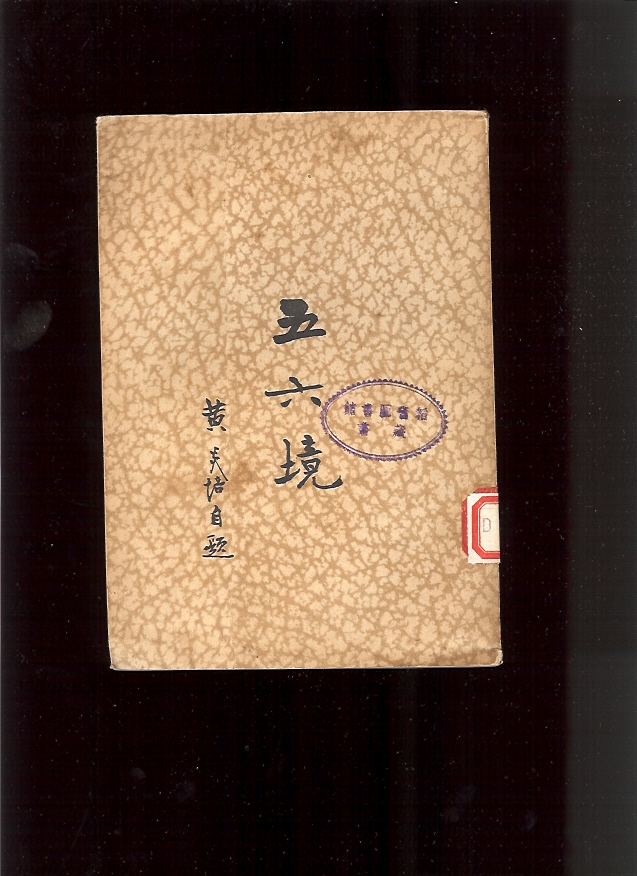 五六境
黄炎培自题
圖書館
藏書
D